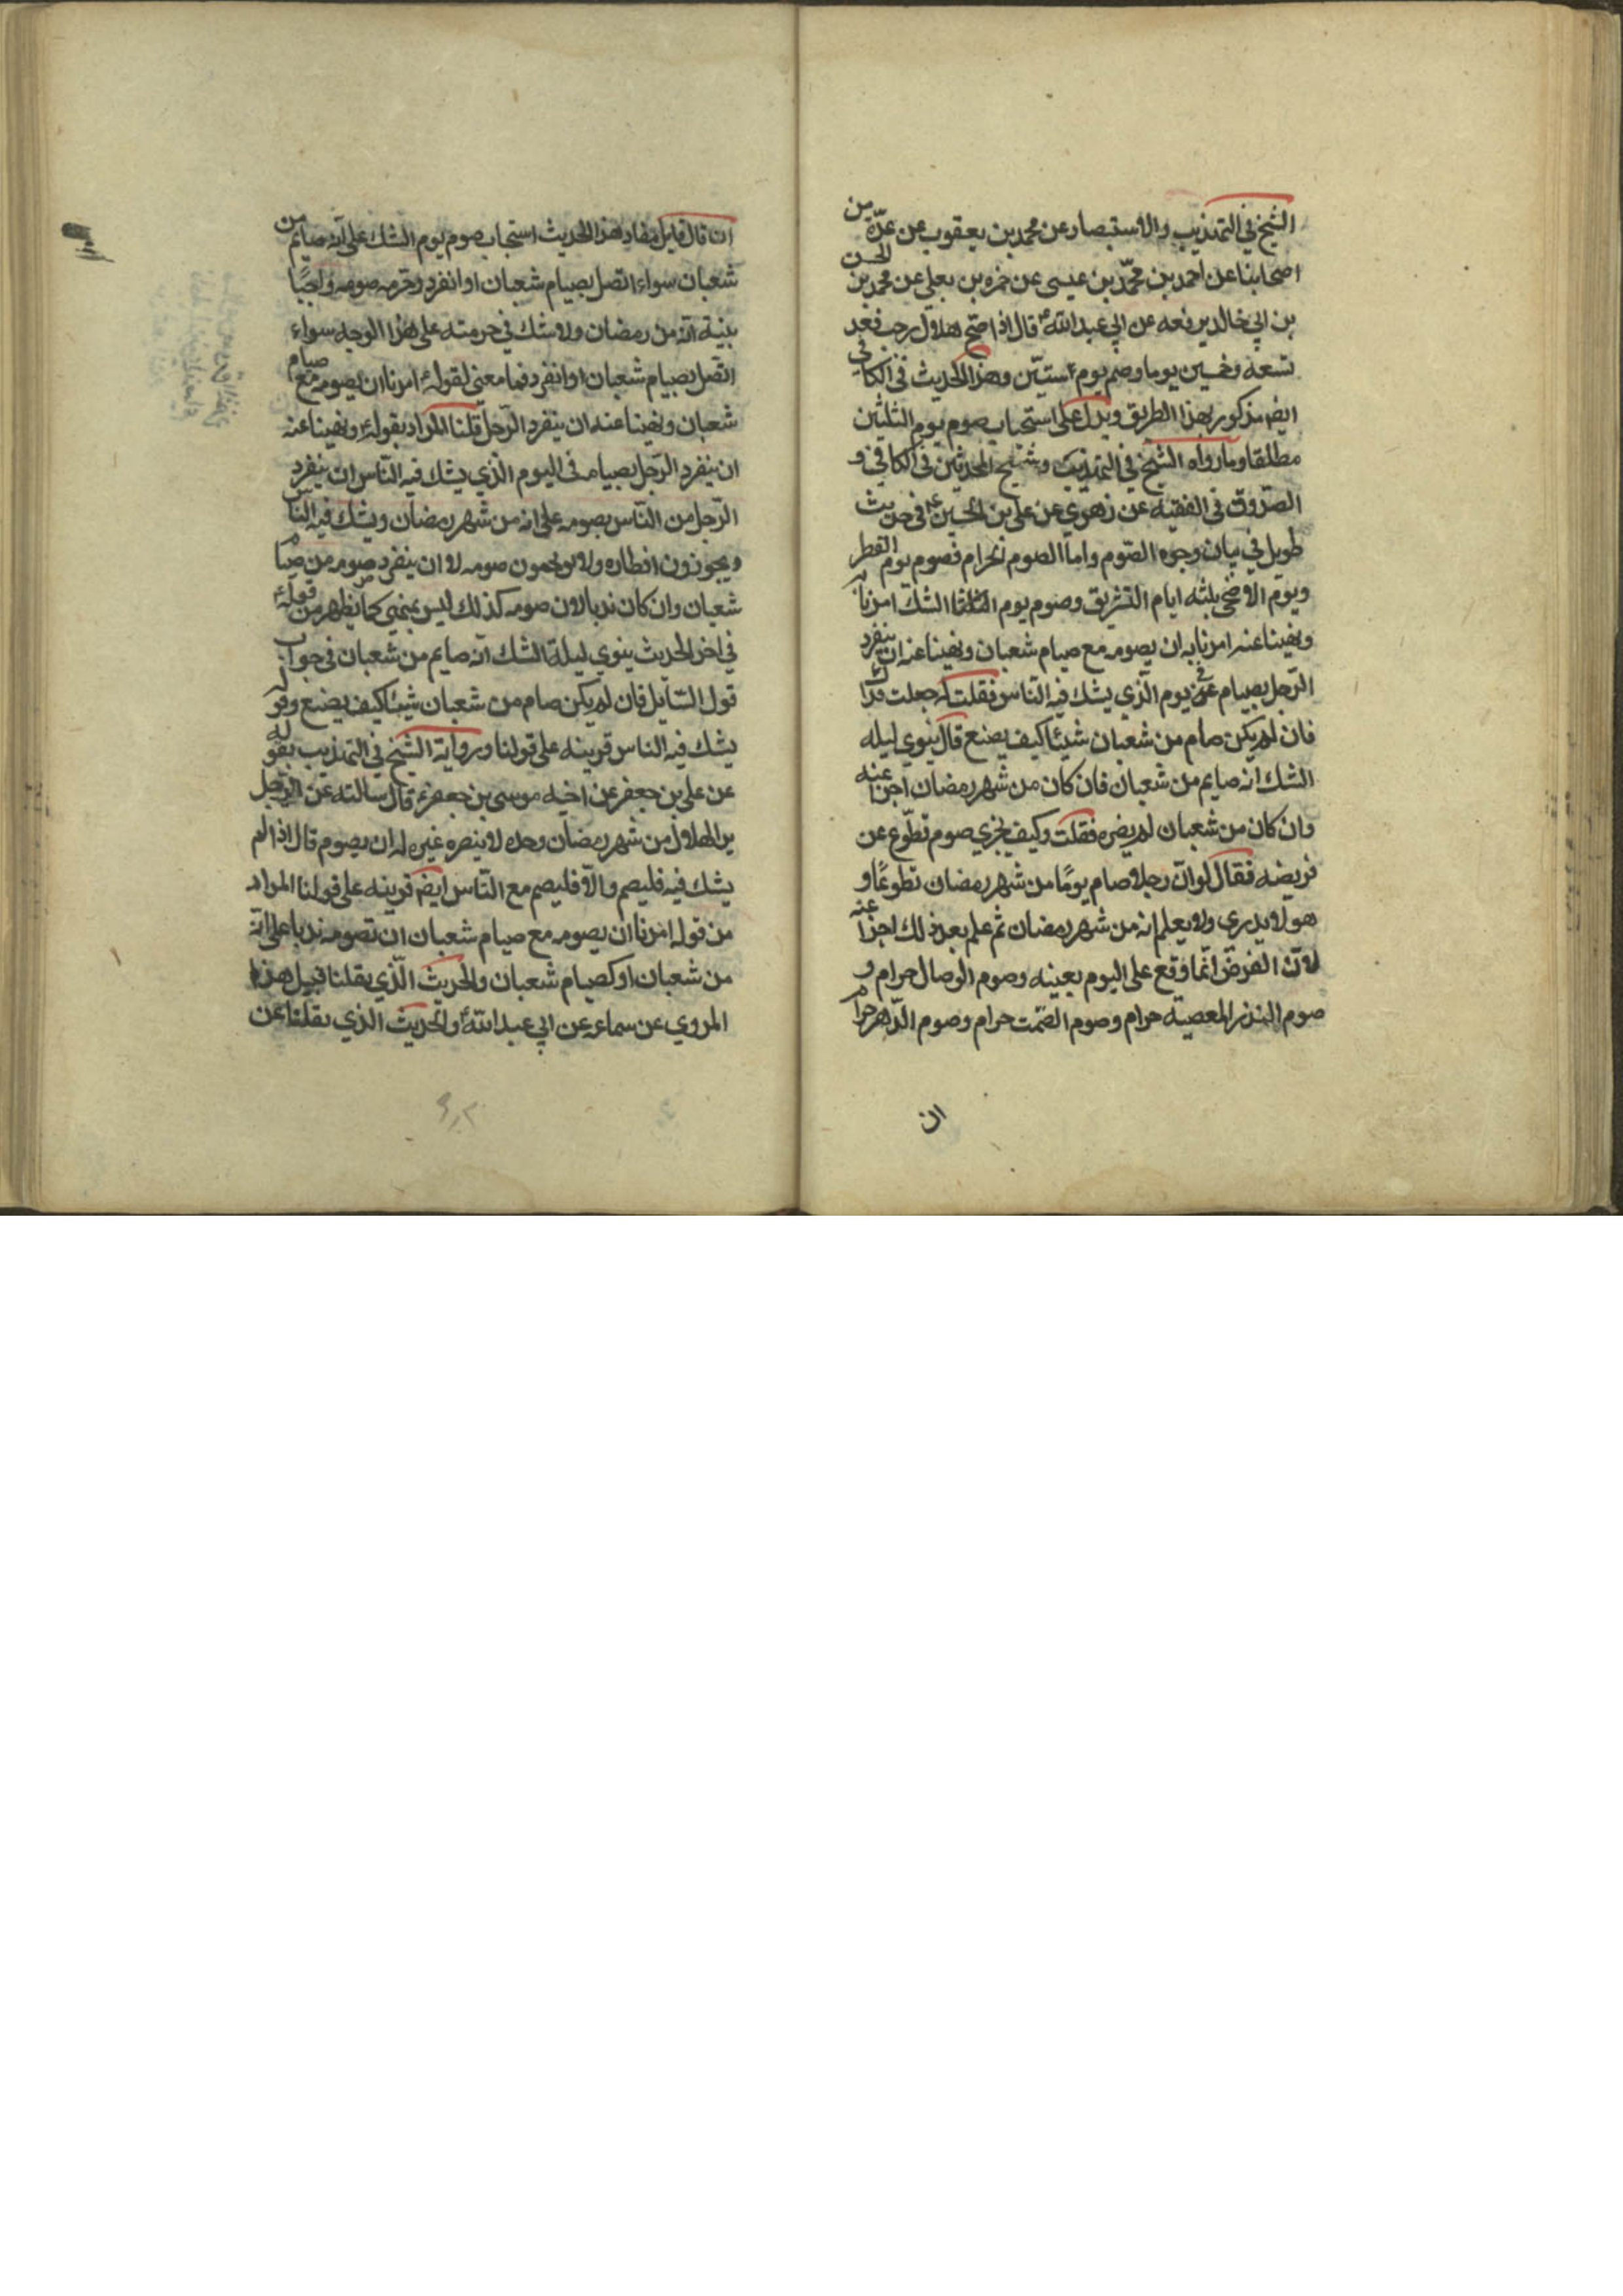 الشيخ في التهذيب والاستبصار عن محمد بن يعقوب عن عدّة من
اصحابنا عن احمد بن محمّد بن عيسى عن حمزه بن يعلى عن محمد بن الحسن
بن ابي خالد يرفعه عن ابي عبد الله ع قال اذا صح هلال رجب فعد
تسعه وخمسين يوما وصم يوم ستّين وهذا الحديث في الكافي
ايض مذكور بهذا الطريق ويدل على استحباب صوم يوم الثلثين
مطلقا وما رواه الشيخ في التهذيب وشيخ المحدثين في الكافي و
الصدوق في الفقيه عن زهري عن علي بن الحسين ع في حديث
طويل في بيان وجوه الصّوم واما الصوم الحرام فصوم يوم الفطر
ويوم الاضحى ثلثه ايام التشريق وصوم يوم الشك امرنا به
ونهينا عنه امرنا به ان يصومه مع صيام شعبان ونهينا عنه ان ينفرد
الرّجل بصيامه في يوم الّذي يشك فيه النّاس فقلت له جعلت فداك
فان لم يكن صام من شعبان شيئا كيف يصنع قال ينوي ليله
الشك انه صايم من شعبان فان كان من شهر رمضان اجزا عنه
وان كان من شعبان لم يضره فقلت وكيف يجزي صوم تطوّع عن
فريضه فقال لو انّ رجلا صام يومًا من شهر رمضان تطوعًا و
هو لا يدرى ولا يعلم انه من شهر رمضان ثم علم بعد ذلك اجزا عنه
لانّ الفرض انّما وقع على اليوم بعينه وصوم الوصال حرام و
صوم النذر المعصية حرام وصوم الصّمت حرام وصوم الدّهر حرام
ان
ان قال قايل مفاد هذا الحديث استحباب صوم يوم الشك على انّه صايم من
شعبان سواء اتصل بصيام شعبان او انفرد وحرمه صومه واجبًا
بنية انّه من رمضان ولا شك في حرمته على هذا الوجه سواء
اتصل بصيام شعبان او انفرد فما معنى لقوله ع امرنا ان يصومه مع صيام
شعبان ونهينا عنه ان ينفرد الرّجل قلنا المراد بقوله ع ونهينا عنه
ان ينفرد الرّجل بصيامه في اليوم الّذي يشك فيه النّاس ان ينفرد
الرّجل من النّاس بصومه على انه من شهر رمضان ويشك فيه النّاس
ويجوّزون افطاره ولا يوجبون صومه لا ان ينفرد صومه من صيام
شعبان وان كان ندبا لان صومه كذلك ليس بمنهي كما يظهر من قوله ع
في اخر الحديث ينوي ليلة الشك انّه صايم من شعبان في جواب
قول السّايل فان لم يكن صام من شعبان شيئا كيف يصنع وقوله
يشك فيه الناس قرينه على قولنا ورواية الشيخ في التهذيب بقوله
عن علي بن جعفر عن اخيه موسى بن جعفر ع قال سالته عن الرّجل
يرى الهلال من شهر رمضان وحده لا ينصره غيره له ان يصوم قال اذا لم
يشك فيه فليصم والّا فليصم مع النّاس ايض قرينه على قولنا المراد
من قوله امرنا ان يصومه مع صيام شعبان ان تصومه ندبا على انّه
من شعبان او كصيام شعبان والحديث الّذي نقلنا قبيل هذا
المروي عن سماعه عن ابي عبد الله ع والحديث الذي نقلنا عن